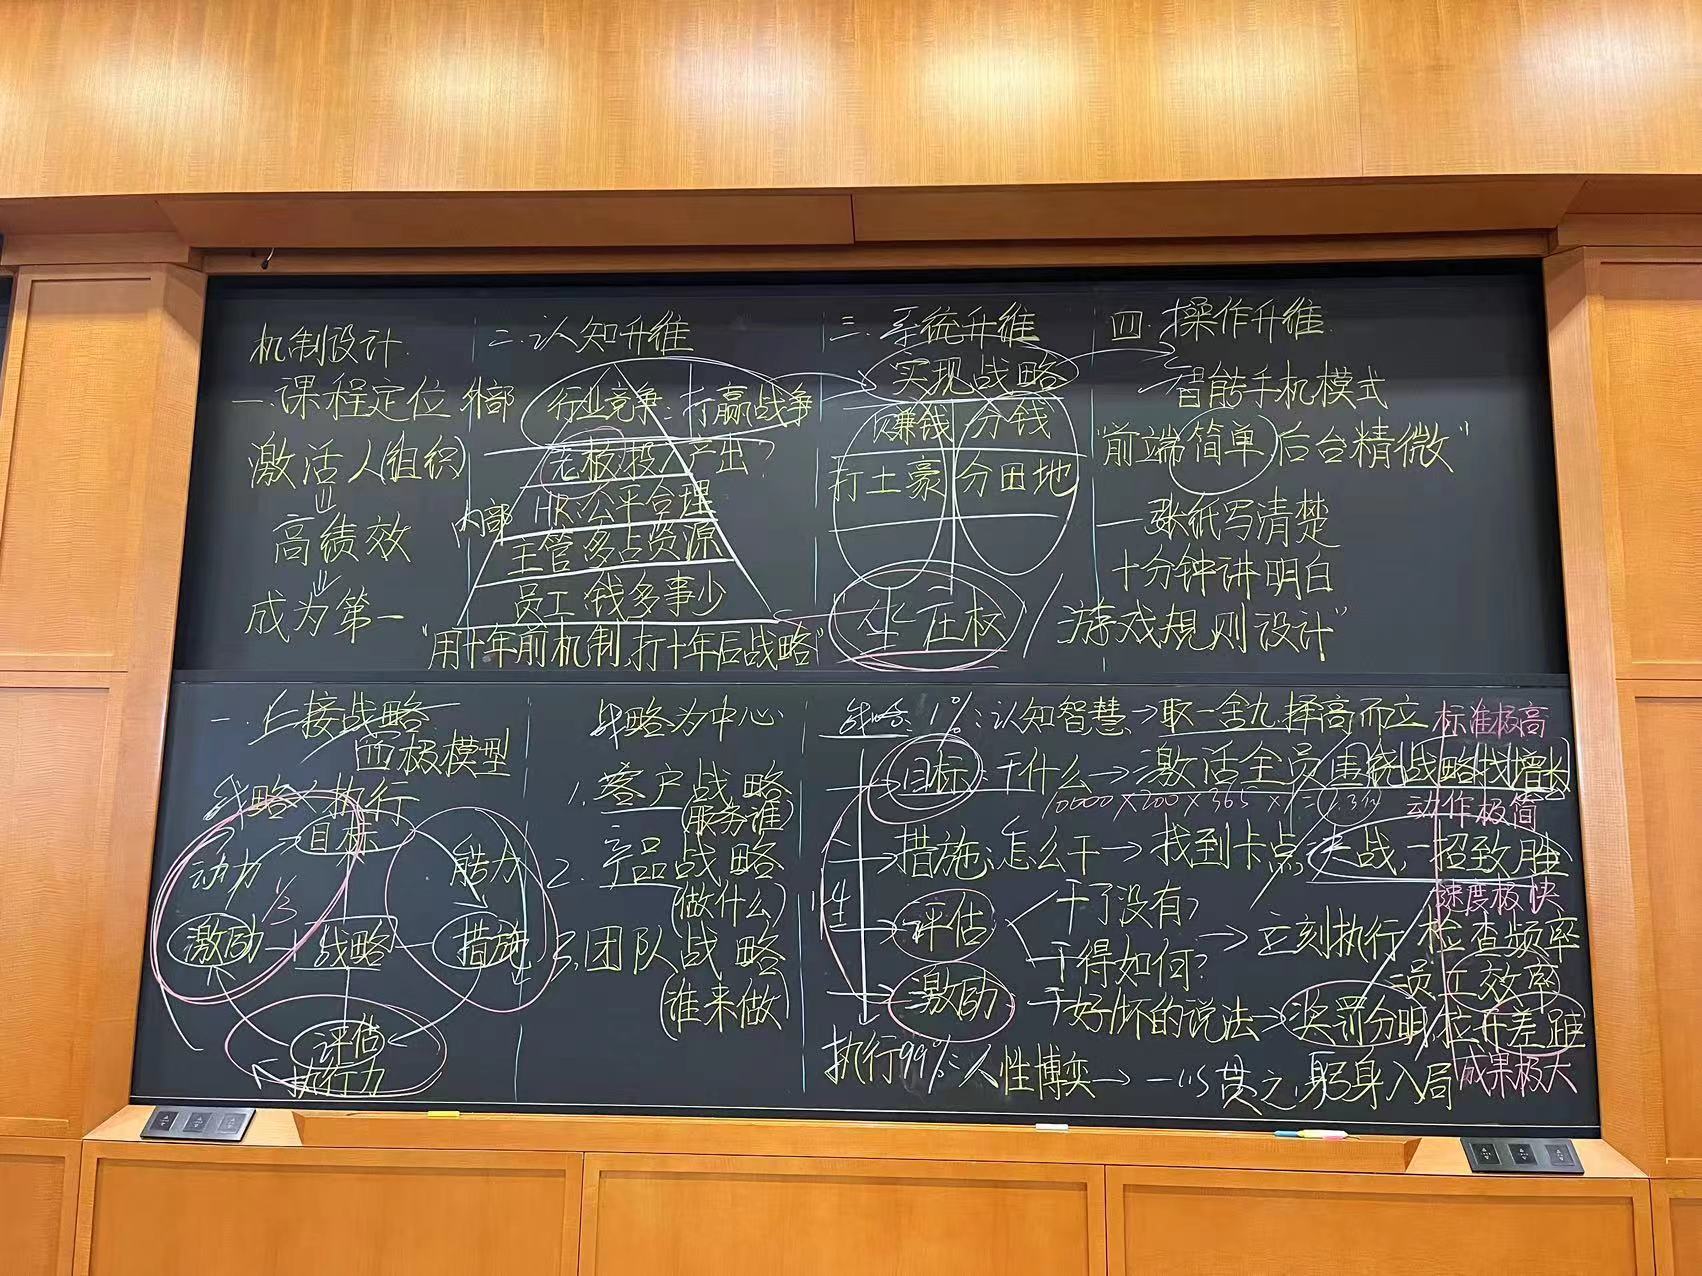 机制设计
一.课程定位
激活人(组织)
高绩效
成为第一
二.认知升维
外部 行业竞争:打赢战争
老板:投入产出?
内部 HR:公平合理
主管:多占资源
员工:钱多事少
"用十年前机制,打十年后战略"
三.系统升维
实现战略
赚钱 分钱
打土豪 分田地
坐庄权
四.操作升维
智能手机模式
"前端简单后台精微"
一张纸写清楚
十分钟讲明白
游戏规则设计"
一.上接战略
四极模型
战略 执行
目标
动力 能力
1/3
激励 战略 措施
评估
执行力
战略为中心
1.客户战略
(服务谁)
2.产品战略
(做什么)
3.团队战略
(谁来做)
战略:1%:认知智慧→取一舍九,择高而立 标准极高
目标:干什么→激活全员围绕战略找增长
动作极简
措施:怎么干→找到卡点,决战,一招致胜
速度极快
评估 干了没有?
干得如何?→立刻执行 检查频率
员工效率
激励 干好/坏的说法→奖罚分明,拉开差距
执行99%:人性博弈→一以贯之,躬身入局 成果极大